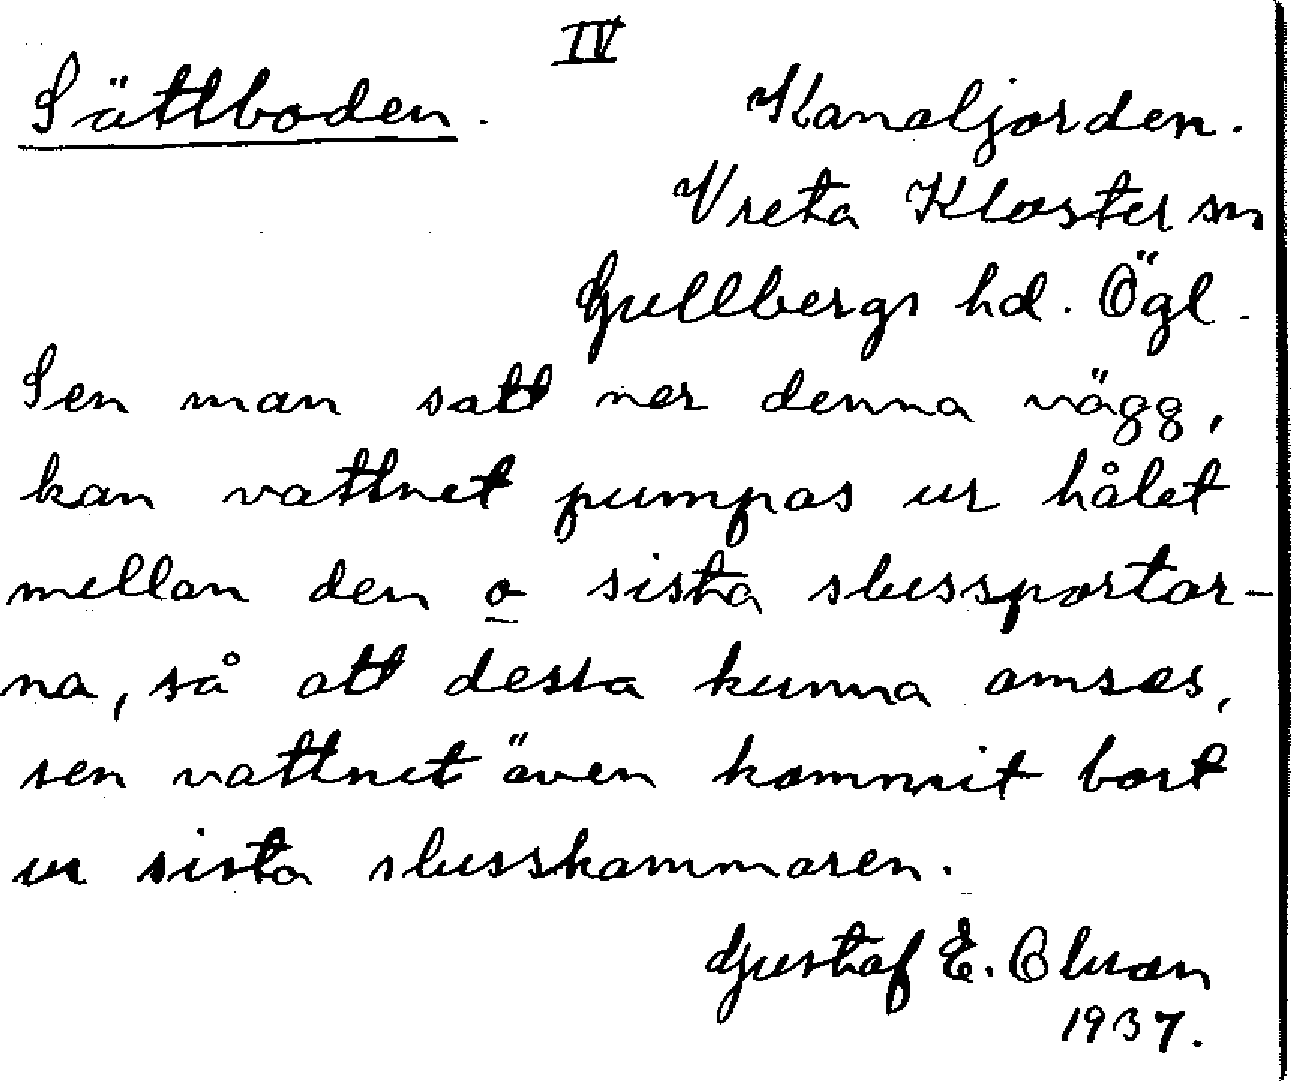 IV
Sättboden.
Kanaljorden.
Vreta Kloster sn
Gullbergs hd. Ögl.
Sen man satt ner denna vägg,
kan vattnet pumpas ur hålet
mellan den o sista slussportar-
na, så att dessa kunna omses,
sen vattnet även kommit bort
ur sista slusskammaren.
Gustaf E. Olsson
1937.